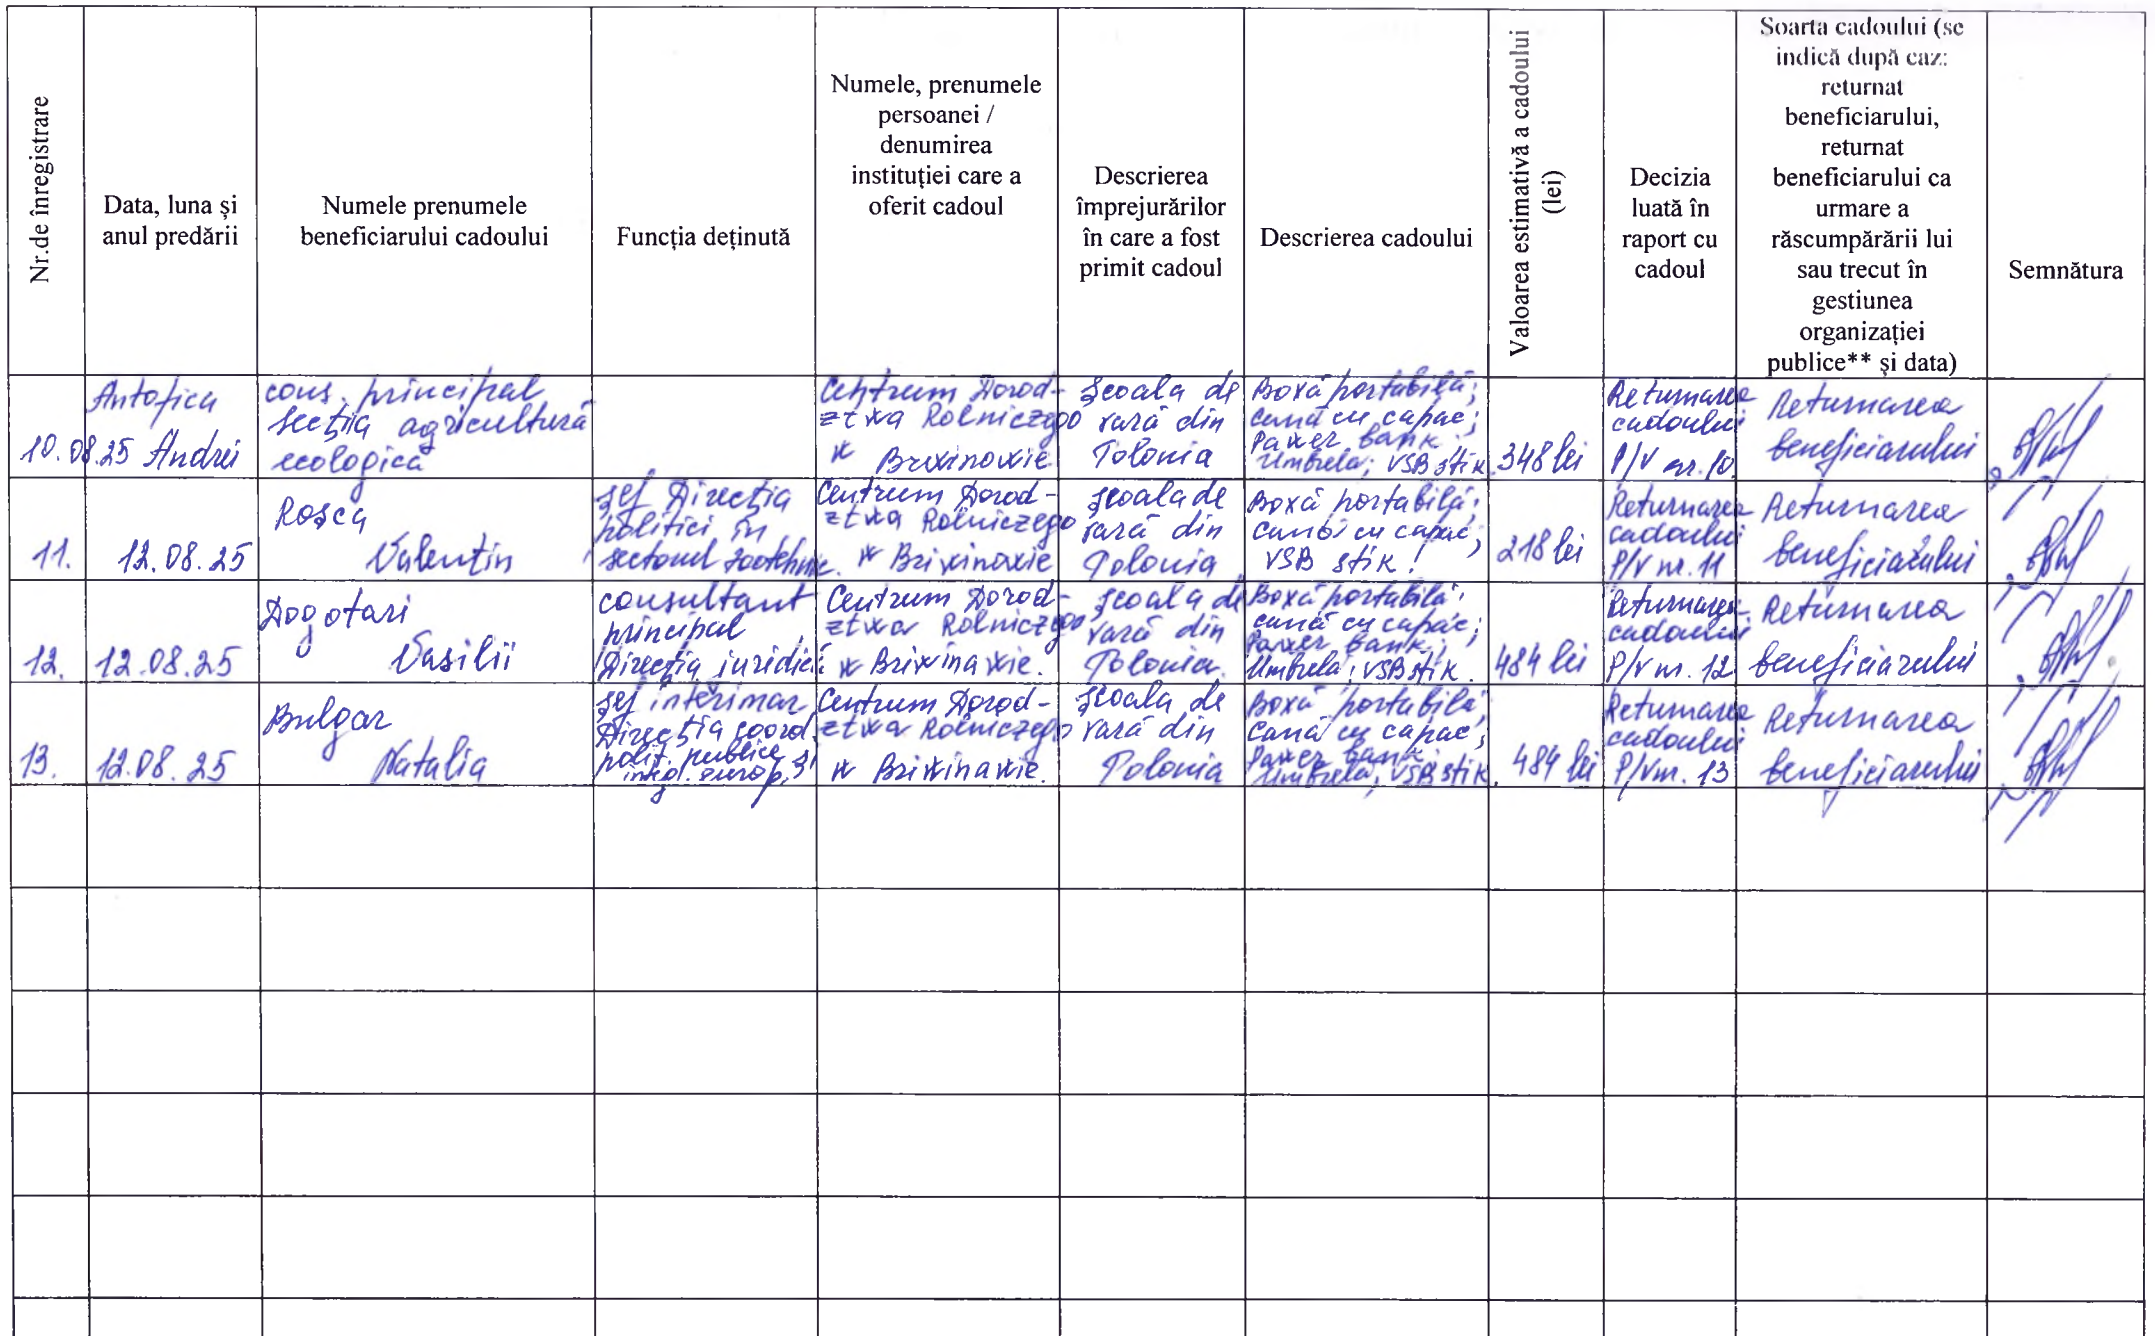 Nr.de înregistrare
Data, luna și
anul predării
Numele prenumele
beneficiarului cadoului
Funcția deținută
Numele, prenumele
persoanei /
denumirea
instituției care a
oferit cadoul
Descrierea
împrejurărilor
în care a fost
primit cadoul
Descrierea cadoului
Valoarea estimativă a cadoului
(lei)
Decizia
luată în
raport cu
cadoul
Soarta cadoului (se
indică după caz:
returnat
beneficiarului,
returnat
beneficiarului ca
urmare a
răscumpărării lui
sau trecut în
gestiunea
organizației
publice** și data)
Semnătura
10.08.25
Antofica
Andrei
cons. principal
secția agricultură
ecologică
Centrum Dorod-
ztwa Rolniczego
w Brwinowie
școala de
vară din
Polonia
Boxă portabilă;
cană cu capac;
Pawer bank;
Umbrela; VSB stik
348 lei
Returnarea
cadoului
P/V nr. 10
Returnarea
beneficiarului
11.
12.08.25
Roșca
Valentin
șef Direcția
politici în
sectorul zootehnic.
Centrum Dorod-
ztwa Rolniczego
w Briwinowie
școala de
vară din
Polonia
Boxă portabilă;
Cană cu capac;
VSB stik!
218 lei
Returnarea
cadoului
P/V nr. 11
Returnarea
beneficiarului
12.
12.08.25
Dogotari
Vasilii
consultant
principal
Direcția juridică
Centrum Dorod-
ztwa Rolniczego
w Briwinawie.
școala de
vară din
Polonia.
Boxă portabilă;
cană cu capac;
Pawer bank;
Umbrela; VSB stik.
484 lei
Returnarea
cadoului
P/V nr. 12
Returnarea
beneficiarului
13.
12.08.25
Bulgar
Natalia
șef interimar
Direcția coord.
polit. publice și
integ. europ.
Centrum Dorod-
ztwa Rolniczego
w Briwinawie.
școala de
vară din
Polonia
Boxă portabilă;
Cană cu capac;
Pawer bank;
Umbrela; VSB stik
484 lei
Returnarea
cadoului
P/V nr. 13
Returnarea
beneficiarului